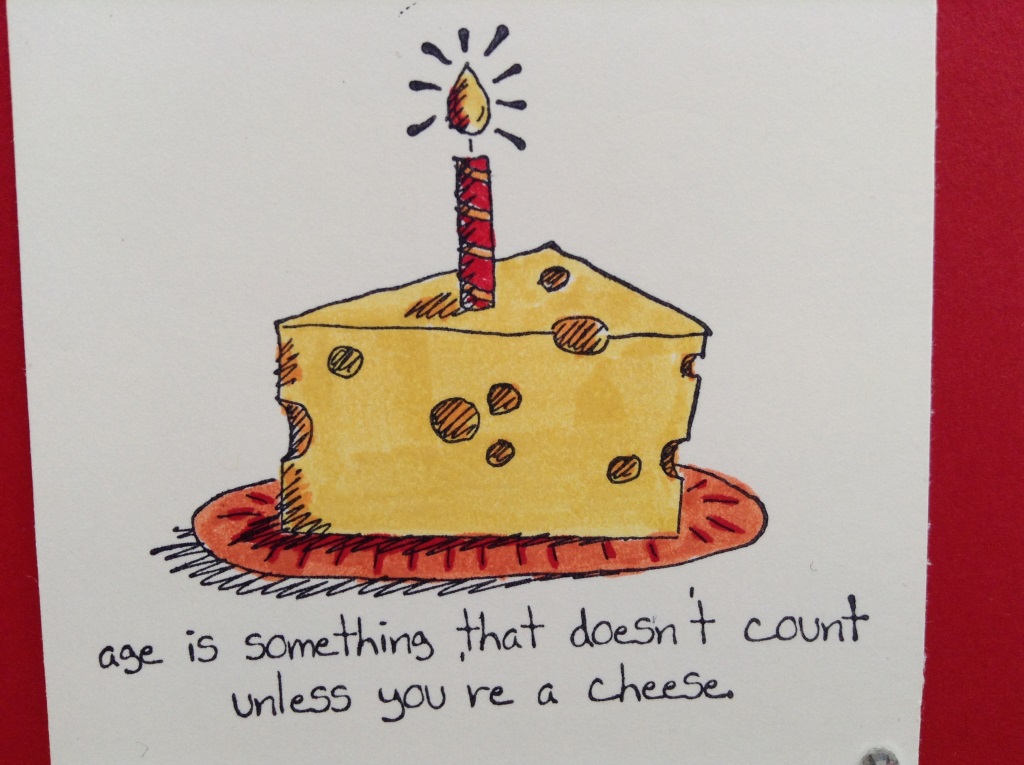 age is something that doesn't count
unless you're a cheese.